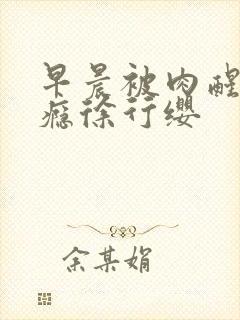 早晨被肉醒
瘾徐行缨
余某娟